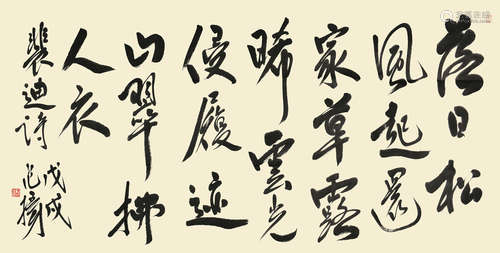 落日松
風起還
家草露
晞雲光
侵履迹
山翠拂
人衣
裴迪诗
戊戌
范揚